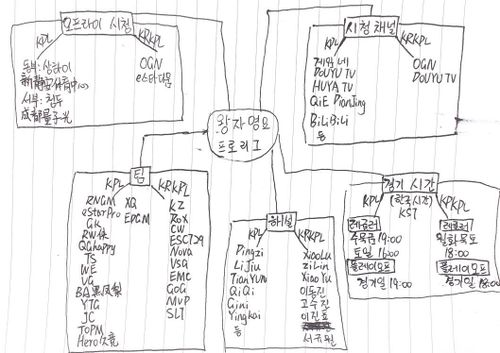 오프라인 시청
KPL
KRKPL
동부: 상하이
서부: 청두
成都量子光
OGN
e스타디움
시청 채널
KPL
KRKPL
DOUYU TV
HUYA TV
QiE DianJing
BiLiBiLi
등
OGN
DOUYU TV
왕자영요
프로리그
팀
KPL
KRKPL
RNGM
eStarPro
GK
RW侠
QGhappy
TS
WE
VG
BA黑凤梨
YTG
JC
TOPM
Hero久竞
XQ
EDGM
KZ
RoX
CW
ESC729
Nova
VSG
EMC
GoG
MVP
SLT
해설
KPL
KRKPL
Pingzi
LiJiu
TianYUN
QiQi
Gini
Yingkai
등
XiaoLu
ziLin
XiaoYu
이동진
고수진
이진표
서규원
경기 시간
(한국시간)
KST
KPL
KRKPL
레귤러
수목금 19:00
토일 16:00
플레이오프
경기일 19:00
레귤러
월화목토
18:00
플레이오프
경기일 18:00